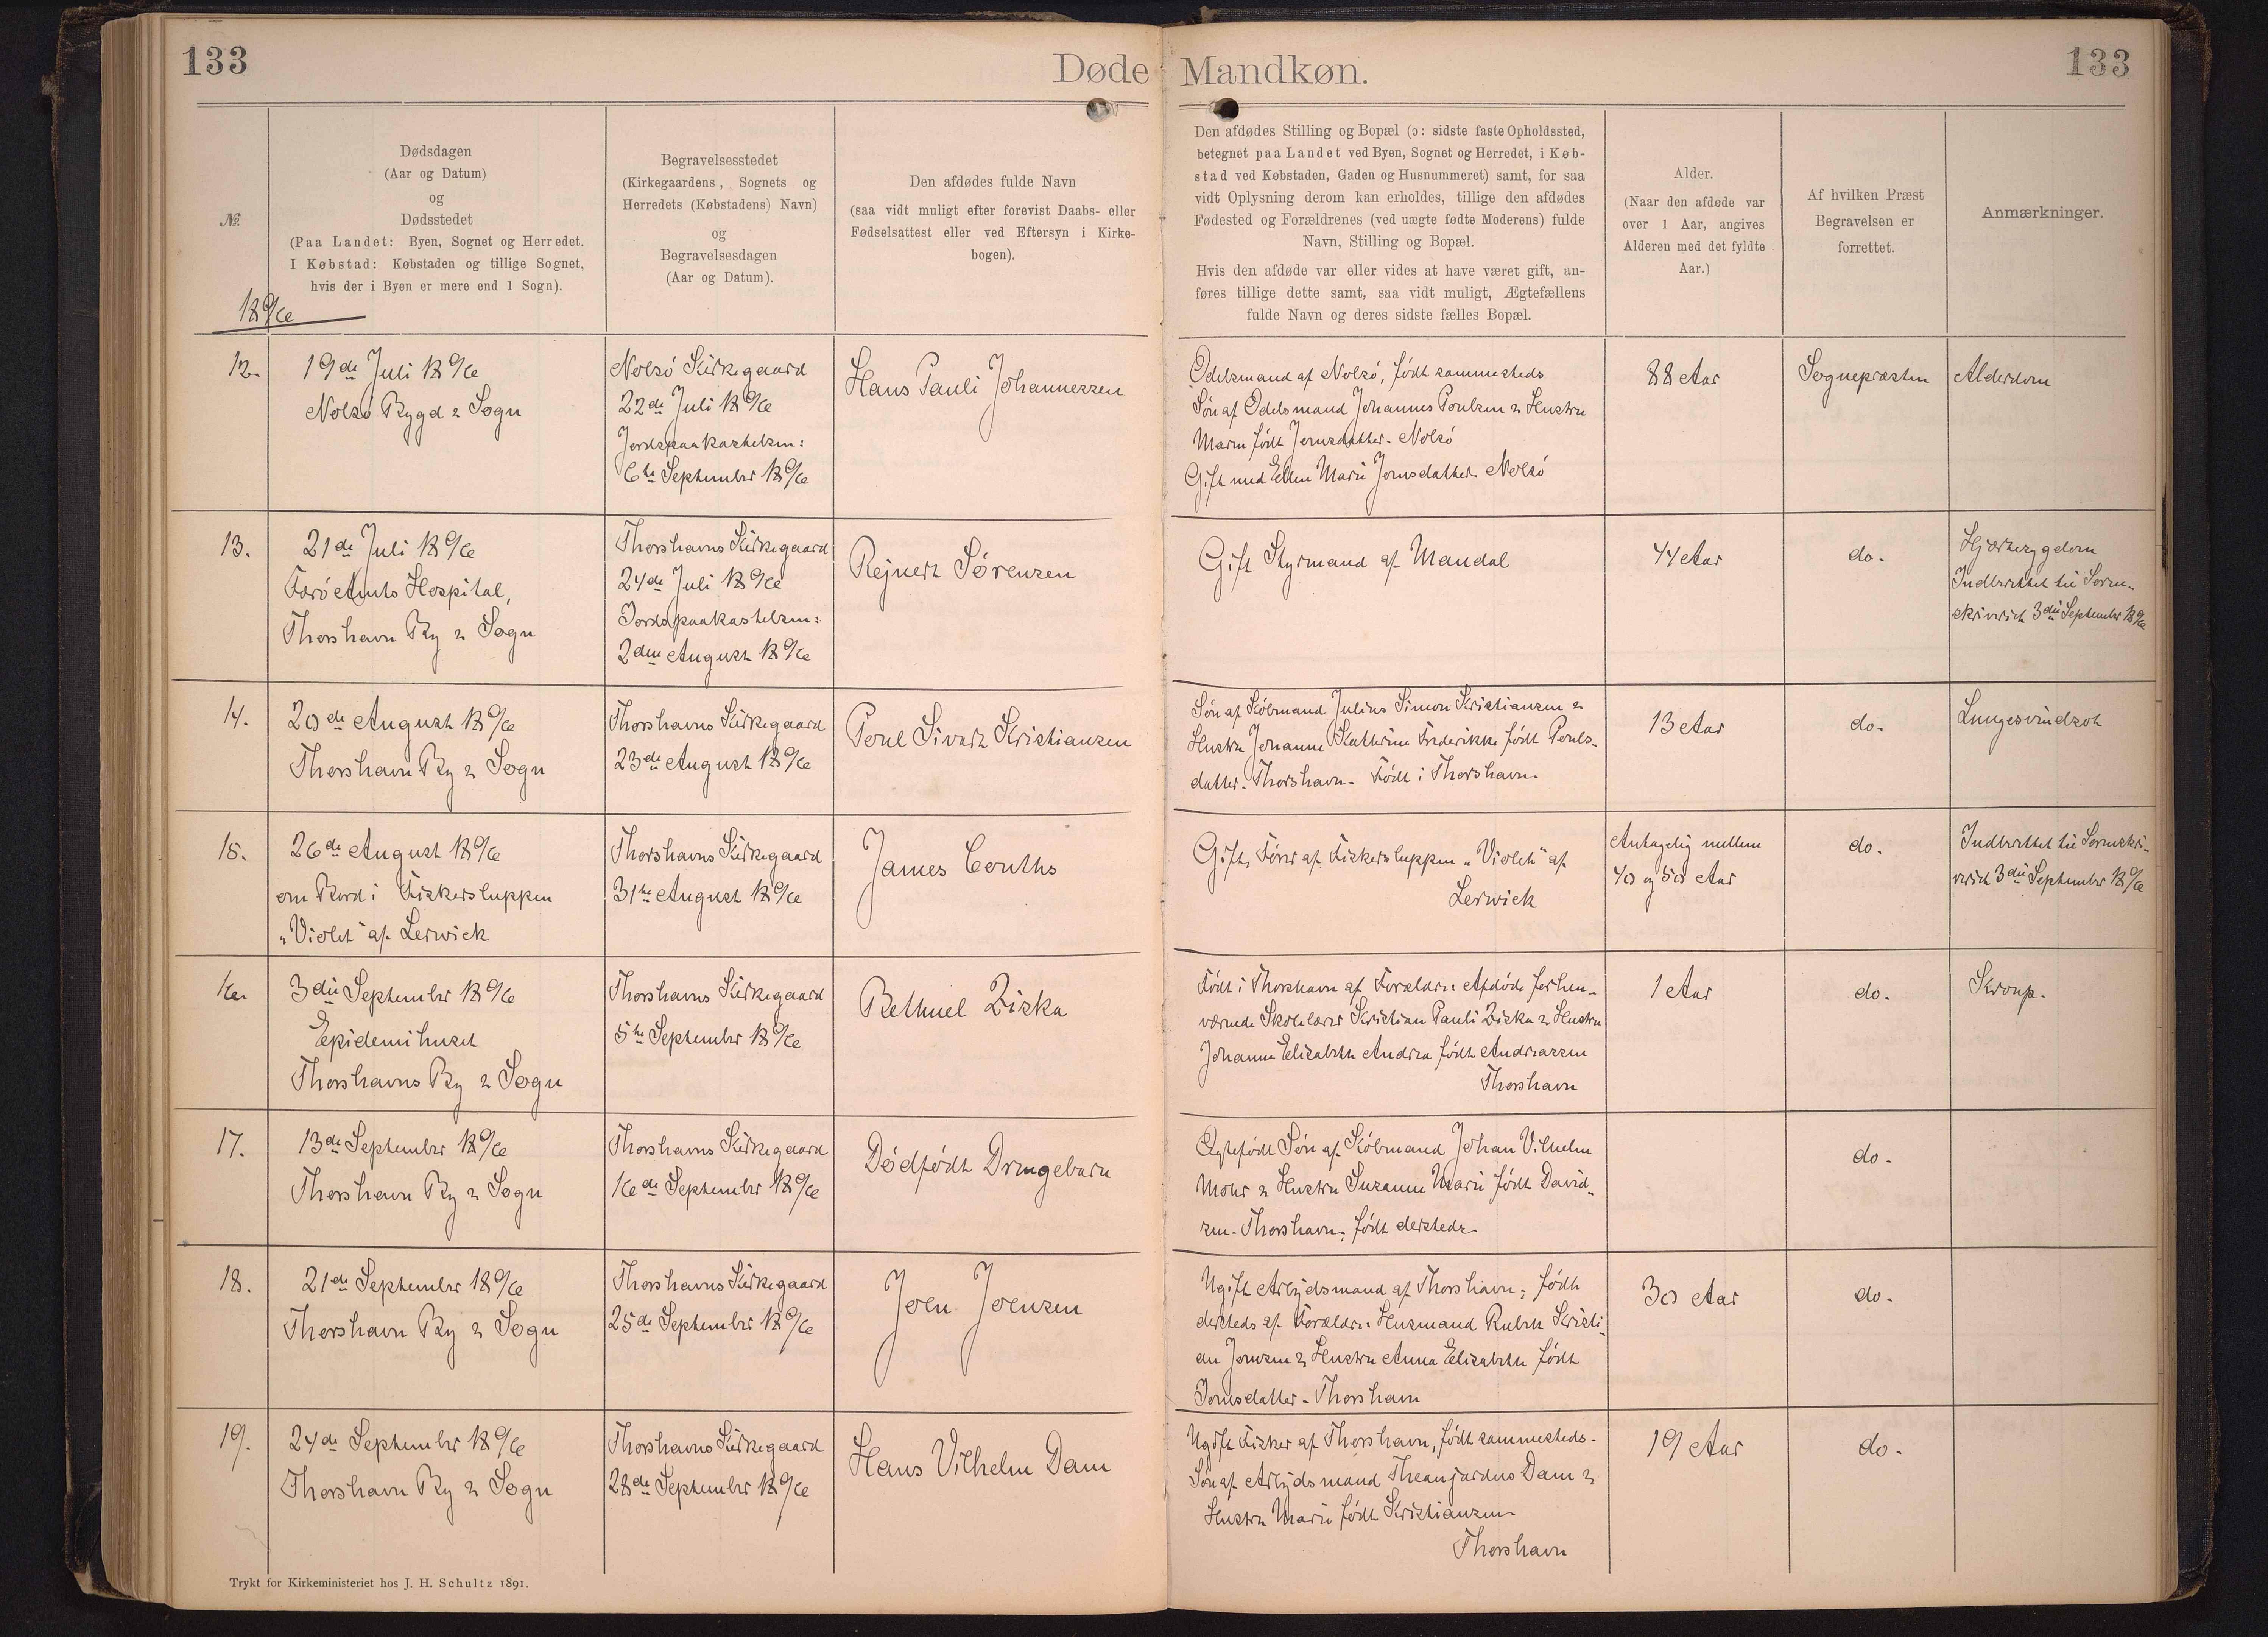 133
Døde Mandkøn.
133
№
Dødsdagen
(Aar og Datum)
og
Dødsstedet
(Paa Landet: Byen, Sognet og Herredet.
I Købstad: Købstaden og tillige Sognet,
hvis der i Byen er mere end 1 Sogn).
Begravelsesstedet
(Kirkegaardens, Sognets og
Herredets (Købstadens) Navn)
og
Begravelsesdagen
(Aar og Datum).
Den afdødes fulde Navn
(saa vidt muligt efter forevist Daabs- eller
Fødselsattest eller ved Eftersyn i Kirke-
bogen).
Den afdødes Stilling og Bopæl (ɔ: sidste faste Opholdssted,
betegnet paa Landet ved Byen, Sognet og Herredet, i Køb-
stad ved Købstaden, Gaden og Husnummeret) samt, for saa
vidt Oplysning derom kan erholdes, tillige den afdødes
Fødested og Forældrenes (ved uægte fødte Moderens) fulde
Navn, Stilling og Bopæl.
Hvis den afdøde var eller vides at have været gift, an-
føres tillige dette samt, saa vidt muligt, Ægtefællens
fulde Navn og deres sidste fælles Bopæl.
Alder.
(Naar den afdøde var
over 1 Aar, angives
Alderen med det fyldte
Aar.)
Af hvilken Præst
Begravelsen er
forrettet.
Anmærkninger.
1896
12.
19de Juli 1896
Nolsö Bygd & Sogn
Nolsö Kirkegaard
22de Juli 1896
Jordspaakastelsen:
6te September 1896
Hans Pauli Johannessen
Odelsmand af Nolsö, født sammesteds
Søn af Odelsmand Johannes Poulsen & Hustru
Maren født Joensdatter. Nolsö
Gift med Ellen Marie Joensdatter Nolsö
88 Aar
Sognepræsten
Alderdom
13.
21de Juli 1896
Færö Amts Hospital,
Thorshavn By & Sogn
Thorshavns Kirkegaard
24de Juli 1896
Jordspaakastelsen:
2den August 1896
Rejnert Sørensen
Gift Styrmand af Mandal
44 Aar
do.
Hjertesygdom
Indberettet til Soren-
skriveriet 3die September 1896
14.
20de August 1896
Thorshavn By & Sogn
Thorshavns Kirkegaard
23de August 1896
Poul Sivert Kristiansen
Søn af Købmand Julius Simon Kristiansen &
Hustru Johanne Kathrine Frederikke født Pouls-
datter. Thorshavn. Født i Thorshavn.
13 Aar
do.
Lungesvindsot
15.
26de August 1896
om Bord i Fiskersluppen
"Violet" af Lerwick
Thorshavns Kirkegaard
31te August 1896
James Couths
Gift, Fører af Fiskersluppen "Violet" af
Lerwick
Antagelig mellem
40 og 50 Aar
do.
Indberettet til Sorenskri-
veriet 3die September 1896
16.
3die September 1896
Epidemihuset
Thorshavns By & Sogn
Thorshavns Kirkegaard
5te September 1896
Bethuel Ziska
Født i Thorshavn af Forældre: Afdøde forhen-
værende Skolelærer Kristian Pauli Ziska & Hustru
Johanne Elisabeth Andrea født Andreassen
Thorshavn
1 Aar
do.
Kroup.
17.
13de September 1896
Thorshavn By & Sogn
Thorshavns Kirkegaard
16de September 1896
Dödfödt Drengebarn
Ægtefødt Søn af Købmand Johan Vilhelm
Mohr & Hustru Susanne Marie født David-
sen. Thorshavn; født dersteds.
do.
18.
21de September 1896
Thorshavn By & Sogn
Thorshavns Kirkegaard
25de September 1896
Joen Joensen
Ugift Arbejdsmand af Thorshavn; født
dersteds af Forældre: Husmand Rubek Kristi-
an Joensen & Hustru Anna Elisabeth født
Joensdatter. Thorshavn
30 Aar
do.
19.
24de September 1896
Thorshavn By & Sogn
Thorshavns Kirkegaard
28de September 1896
Hans Vilhelm Dam
Ugift Fisker af Thorshavn, født sammesteds.
Søn af Arbejdsmand Dam &
Hustru Marie født Kristiansen.
Thorshavn
19 Aar
do.
Trykt for Kirkeministeriet hos J. H. Schultz 1891.